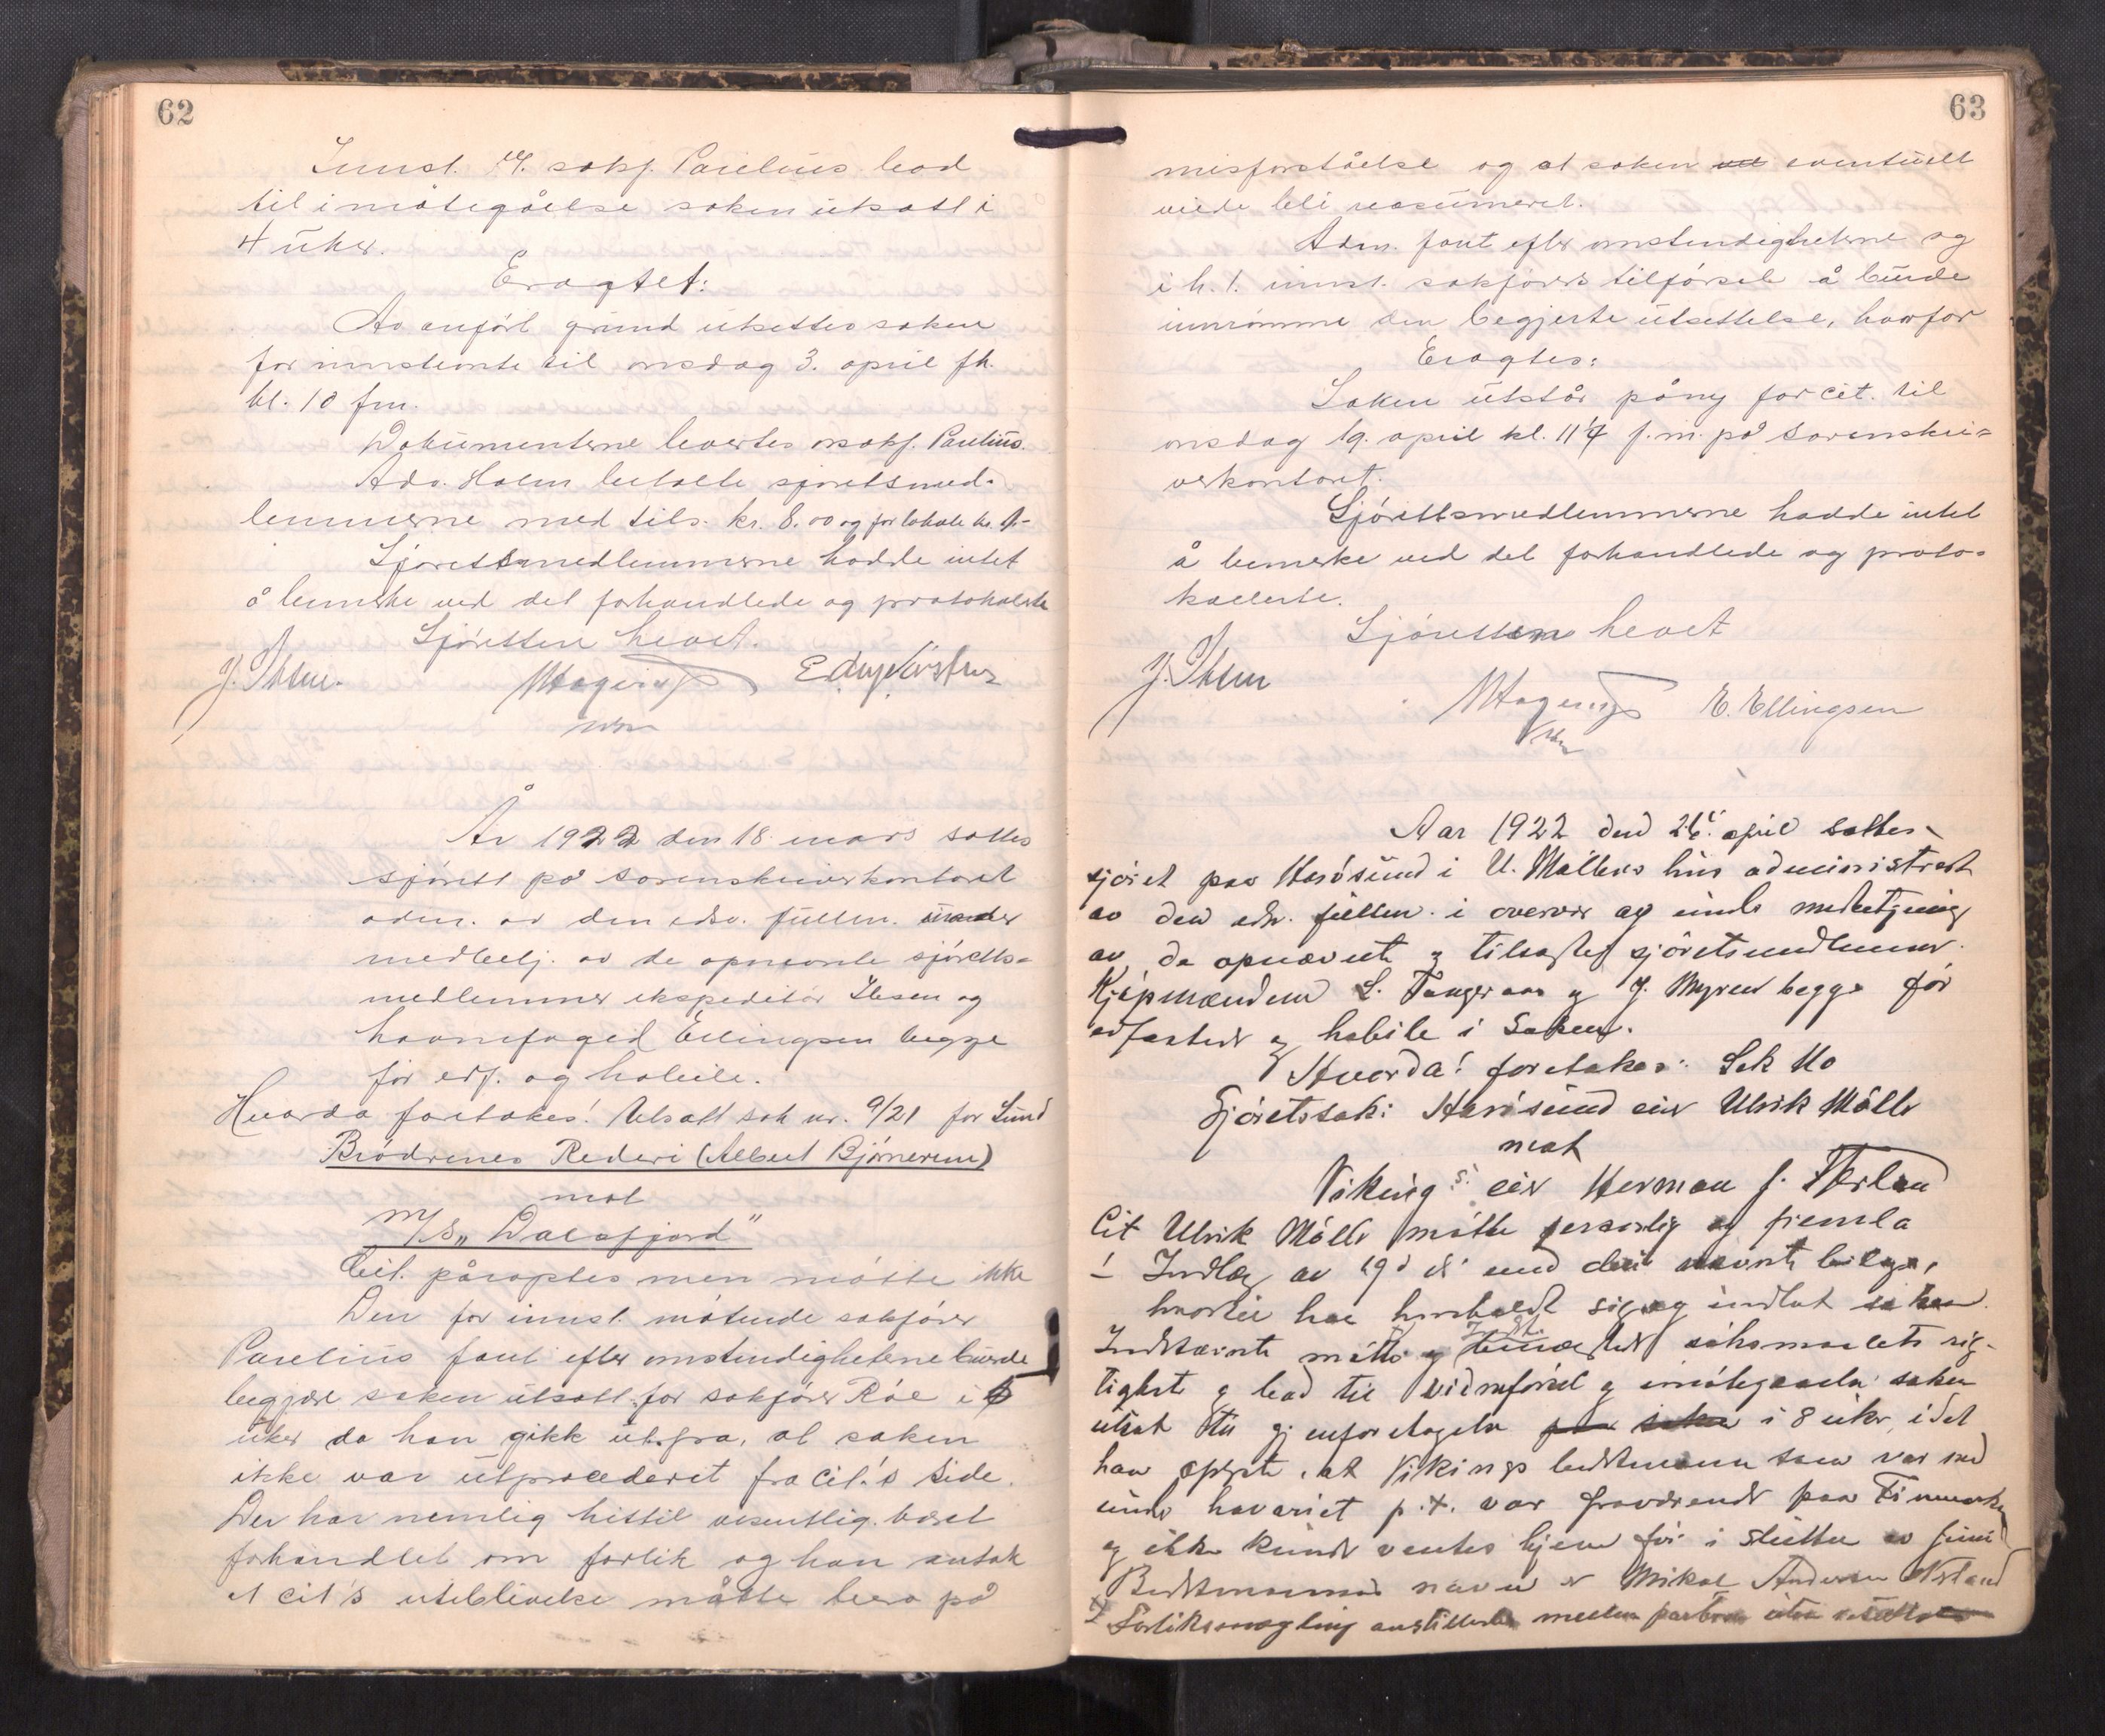 62
Innst. v/. sakf. Parelius bad
til imøtegåelse saken utsatt i
4 uker.
Eragtet:
Av anført grund utsettes saken
for innstevnte til onsdag 3. april fk.
kl. 10 fm.
Dokumenterne levertes osakf. Parelius.
Adv. Holm betalte sjøretsmed-
lemmerne med tils. kr. 8.00 og for lokale kr. 1-
Sjøretsmedlemmerne hadde intet
å bemerke ved det forhandlede og protokolerte
Sjøretten hevet.
J. Ibsen.
År 1922 den 18. mars sattes
sjørett på sorenskriverkontoret
adm. av den edsv. fullm. under
medbetj. av de opnevnte sjøretts-
medlemmer ekspeditør Ibsen og
havnefoged Ellingsen begge
før edf. og habile.
Hvorda foretokes: Utsatt sak nr. 9/21 for Lund
Brødrenes Rederi (Albert Bjørnerem)
mot
M/S „Dalsfjord"
Cit. påroptes men møtte ikke
Den for innst. møtende sakfører
Parelius fant efter omstendighetene burde
begjære saken utsatt for sakfører Röe i 4
uker da han gikk ut fra, at saken
ikke var utprocederet fra cit.'s side.
Der har nemlig hittil vesentlig været
forhandlet om forlik og han antok
at cit's uteblivelse måtte bero på
63
misforståelse og at saken vil eventuelt
vilde bli reasumeret.
Adm. fant efter omstendigheterne og
i h. t. innst. sakførers tilførsel å burde
innrømme den begjerte utsettelse, hvorfor
Eragtes:
Saken utstår påny for cit. til
onsdag 19. april kl. 11 1/4 f.m. på sorenskri-
verkontoret.
Sjørettsmedlemmerne hadde intet
å bemerke ved det forhandlede og proto-
kollerte.
Sjøretten hevet
J. Ibsen
E. Ellingsen
Aar 1922 den 26. april sattes
sjøret paa Harøsund i U. Møllers hus administrert
av den edsv. fullm. i overvær og under medbetjening
av de opnævnte og tilsagte sjøretsmedlemmer
Kjøpmændene L. Tangeraas og J. Myren begge før
edfæstede og habile i saken.
Hvorda: foretokes: Sak No
Sjøretssak: Harøsund eier Ulrik Møller
mot
Viking's eier Herman J.
Cit Ulrik Møller møtte personlig og fremla
1 Indlæg av 19 ds med deri nævnte bilage,
hvortil han henholdt sig og indlot saken
Indstævnte møtte og Indst. søksmaalets rig-
tighet og bad til vidneførsel og imøtegaaelse saken
utsat til gjenforetagelse paa saken i 8 uker, idet
han oplyste, at Vikings bedstmann som var med
under havariet p.t. var fraværende paa Finmarken
og ikke kunde ventes hjem før i slutten av juni
Bedstmannens navn er Mikal Andersen
Forliksmægling anstilledes mellem parterne uten